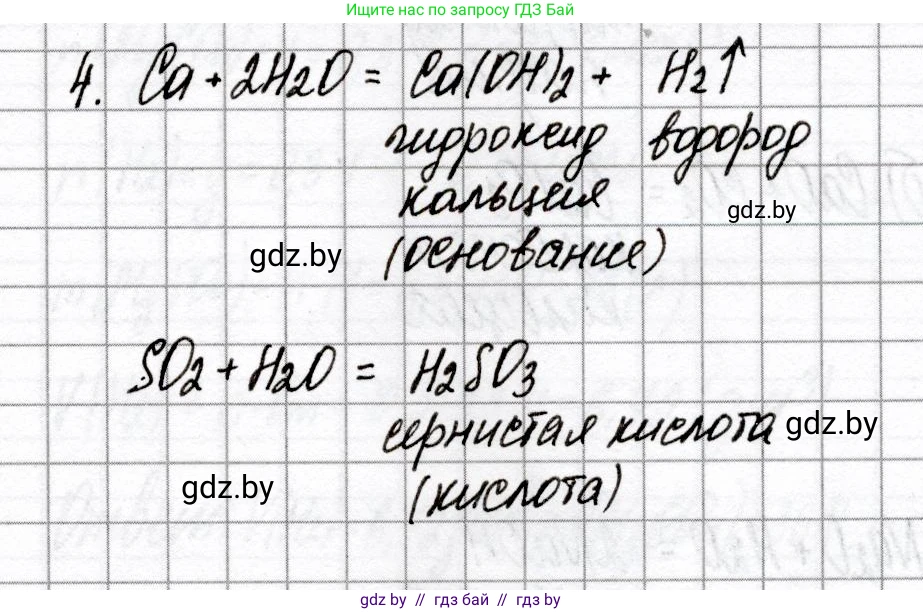 Ищите нас по запросу ГДЗ Бай
4. Ca + 2H2O = Ca(OH)2 + H2↑
гидроксид водород
кальция
gdz.by
gdz.by (основание)
SO2 + H2O = H2SO3
сернистая кислота gdz.by
gdz.by (кислота)
gdz.by // гдз бай // гдз by